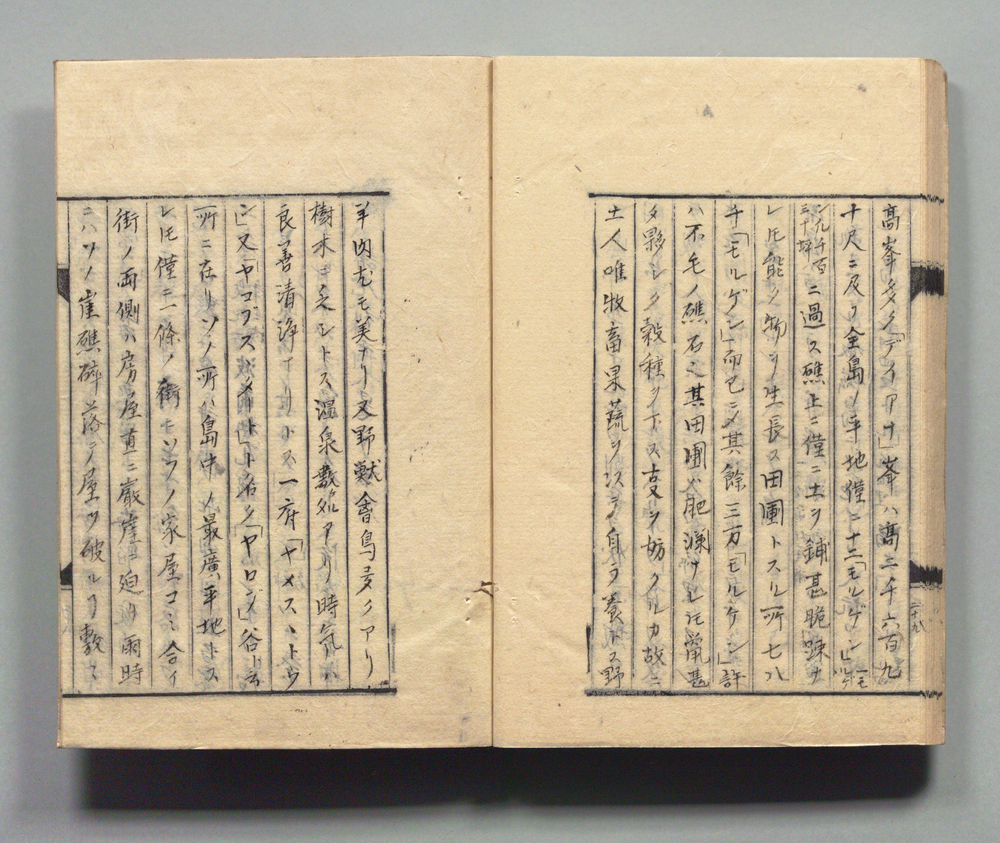 高峯多ク「デイアナ」峯ハ高二千六百九
十尺ニ及フ全島ノ平地僅ニ十二「モルゲン」
九千百
三十坪ニ過ス礁上ニ僅ニ土ヲ鋪甚脆踈ナ
レ圧能ク物ヲ生長ス田圃トスル所七八
千「モルゲン」而已ニメ其餘三万「モルケン」許
ハ不毛ノ礁石也其田圃ハ肥溂ナレ圧鼠甚
タ夥シク穀種ヲ下ス支ヲ妨クルカ故ニ
土人唯牧畜果蔬ヲ以テ自ラ養トス野
羊肉尤モ美ナリ又野獣會鳥多クアリ
樹木ニ乏シトス温泉数処アリ時氣ハ
良善清浄ナリトス一府「ヤメス」トウ
ン又「ヤコブス」ト名ク「ヤロブ」谷ト云
所ニ在リソノ所ハ島中ノ最廣平地トス
レ圧僅ニ一條ノ街ニソノ家屋コミ合イ
街ノ両側ハ房屋直ニ巌崖ニ廹リ雨時
ニハソノ崖礁碎落シ屋ヲ破ルヿ数々
二十九